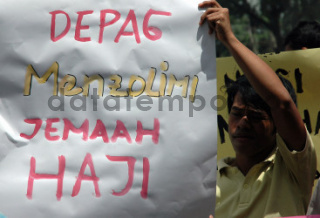 DEPAG
Menzolimi
datatempo
JEMAAH
HAJI